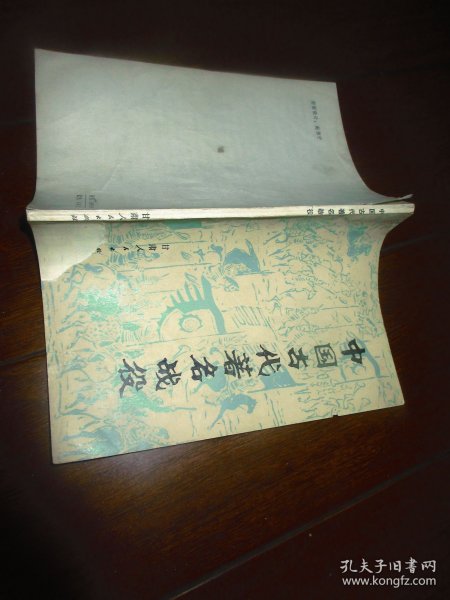 中国古代著名战役
甘肃人民出版社
中国古代著名战役
甘肃人民出版社
孔夫子旧书网
www.kongfz.com